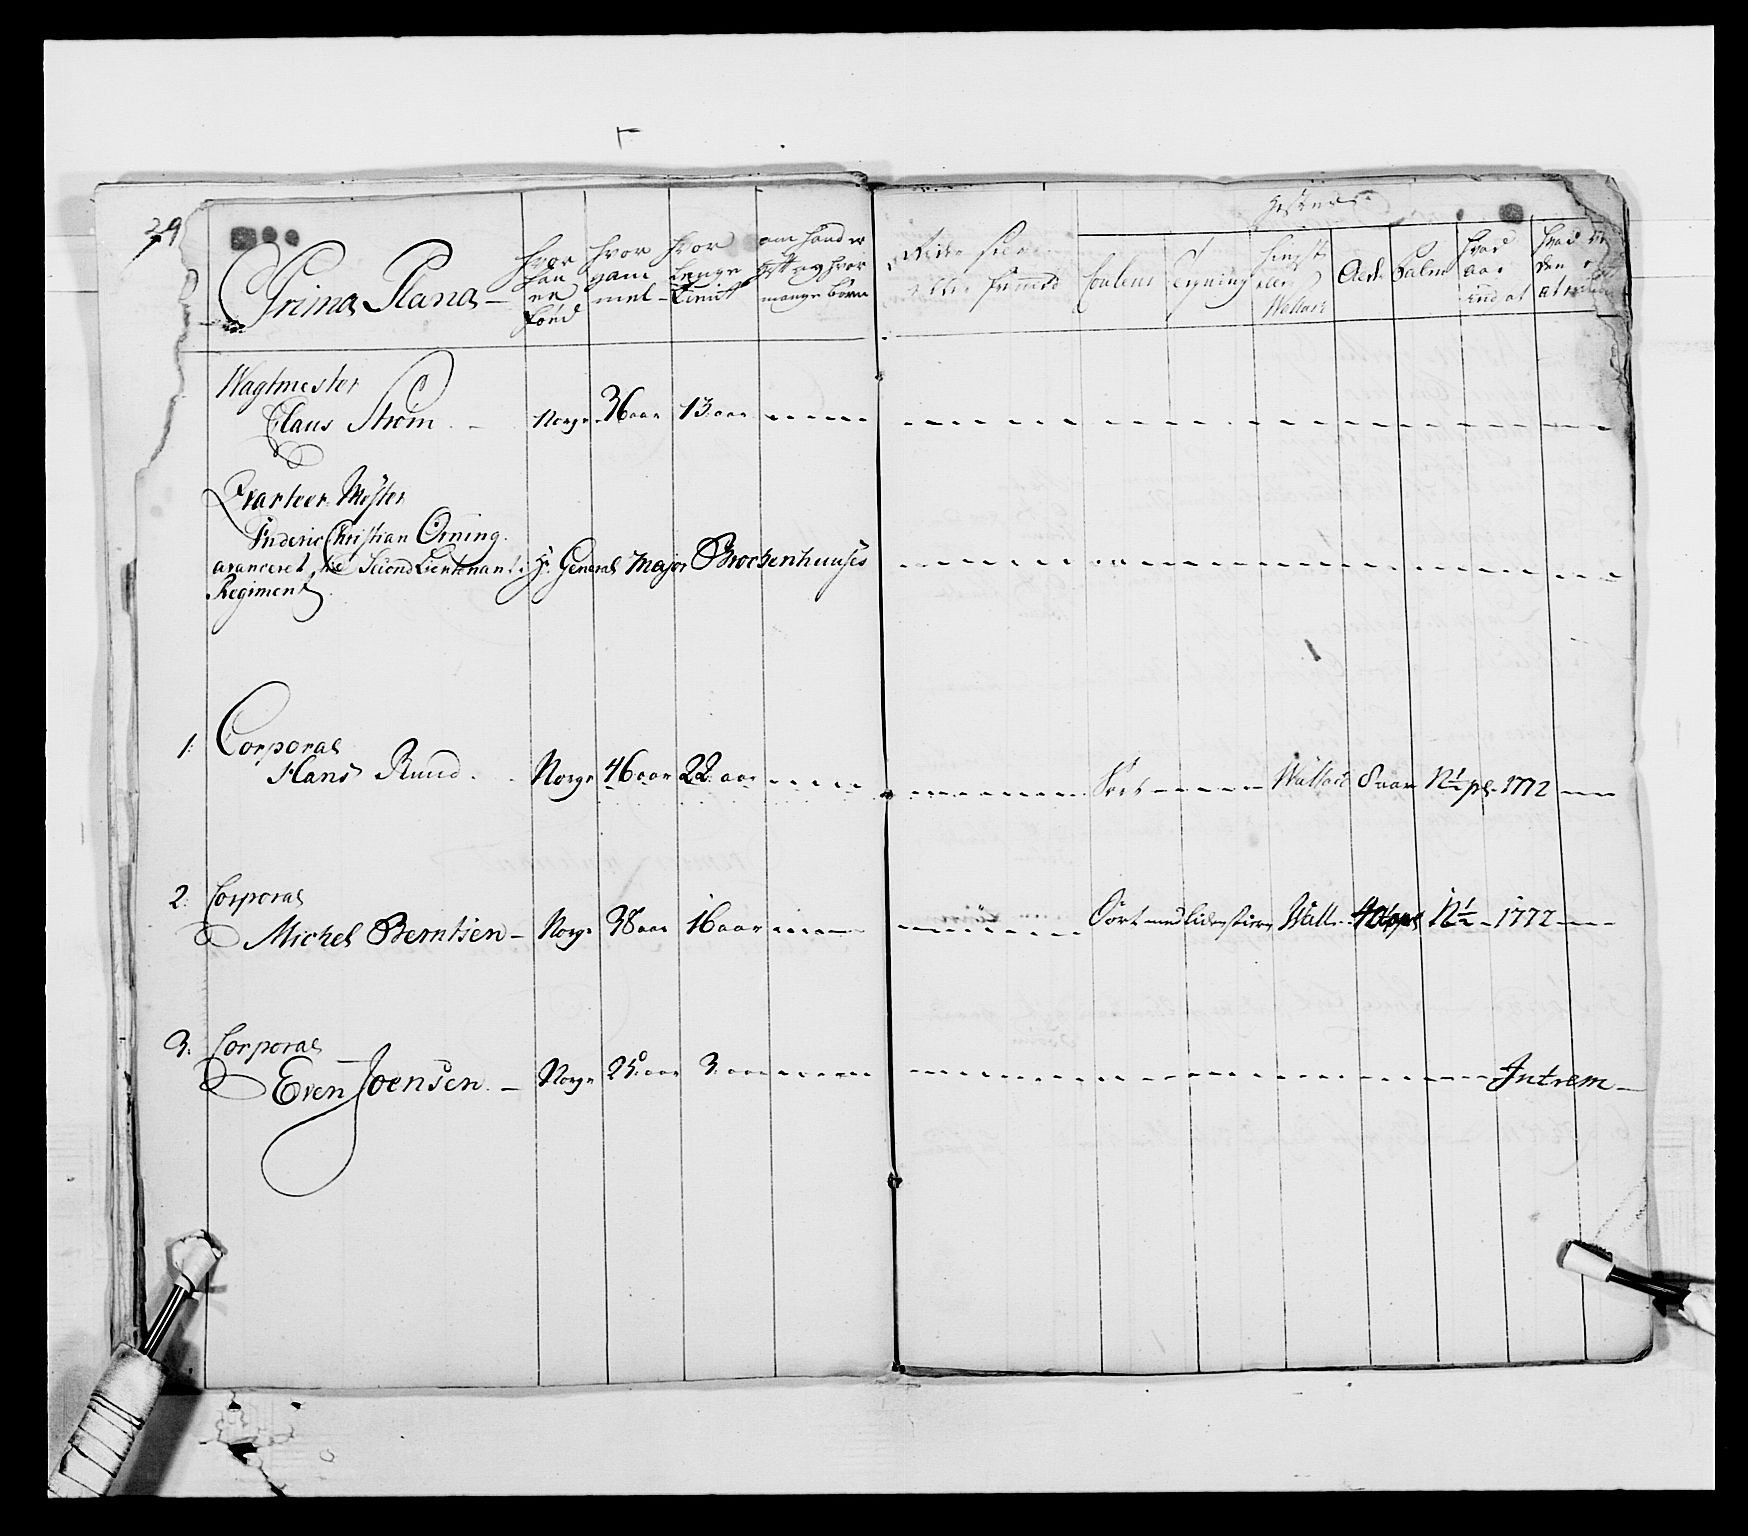 29
Prima Plana
Hvor han er född
Hvor gammel
Hvor Lenge tient
om hand er gift og hvor mange börn
Hestens
Couleur
Tegning
Hingst eller Wallack
Aeder
Palm
Hvad aar ind at
Wagtmester
Claus Strøm - Norge 36 aar 13 aar
Qvarteer Mester
Frideric Christian Orning
avanceret til Second Lieutenant i Hr. General Major Brockenhuuses
Regiment
1: Corporal
Hans Ruud. Norge 46 aar 22 aar Sort Wallack 8 aar N 1/2 pl. 1772
2: Corporal
Michel Berntsen - Norge 38 aar 16 aar Sort med liden stierne Wall. N 1/2 - 1772
3: Corporal
Even Joensen - Norge 25 aar 3 aar Intrem